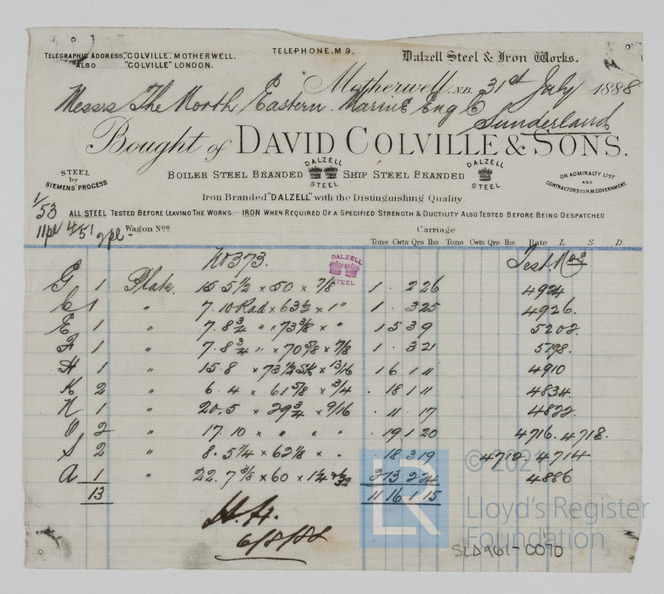 TELEGRAPHIC ADDRESS, "COLVILLE", MOTHERWELL.
ALSO "COLVILLE" LONDON.
TELEPHONE, M 9.
Dalzell Steel & Iron Works.
Motherwell, N.B. 31st July 1888
Messrs The North Eastern Marine Eng Co
Sunderland
Bought of DAVID COLVILLE & SONS.
STEEL by SIEMENS' PROCESS
BOILER STEEL BRANDED DALZELL STEEL SHIP STEEL BRANDED DALZELL STEEL
ON ADMIRALTY LIST AND CONTRACTORS TO H.M. GOVERNMENT.
Iron Branded "DALZELL" with the Distinguishing Quality
1/53
ALL STEEL TESTED BEFORE LEAVING THE WORKS.—IRON WHEN REQUIRED OF A SPECIFIED STRENGTH & DUCTILITY ALSO TESTED BEFORE BEING DESPATCHED
11pl 4/51 2pl Wagon Nos Carriage
Tons Cwts Qrs lbs Tons Cwts Qrs lbs Rate L S D
No 373. DALZELL STEEL Test Nos
G 1 Plate 15.5½ × 50 × 7/8 1 . 2 26 4924
C 1 " 7.10 Rad × 63½ × 1" 1 . 3 25 4926.
E 1 " 7.8¾ " × 73⅜ × " 1 5 3 9 5202.
F 1 " 7.8¾ " × 70⅝ × 7/8 1 . 3 21 5198.
H 1 " 15.8 × 73½ × 13/16 1 6 1 11 4910
K 2 " 6.4 × 61⅝ × ¾ . 18 1 11 4834.
N 1 " 20.5 × 29¾ × 9/16 . 11 . 17 4822.
O 2 " 17.10 × " × " . 19 1 20 4716. 4718.
S 2 " 8.5¼ × 62⅛ × " . 18 3 19 4712. 4714
A 1 " 22.7⅜ × 60 × 1¼ 2 13 2 24 4886
13 11 16 1 15
H.H.
6/8/88
© 2021
LR
Lloyd's Register
Foundation
SLD961-0070